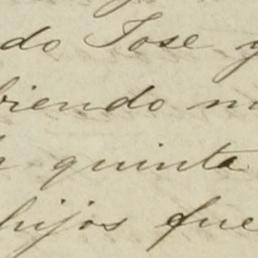 do Jose y
riendo m
quinta
hijos fue